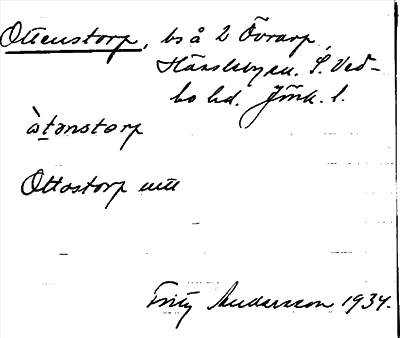 Ottenstorp, bs å 2 Övrarp,
Hässleby sn. S. Ved-
bo hd. Jönk. l.
àtənstorp
Ottostorp utt
Fritz Andersson 1934.